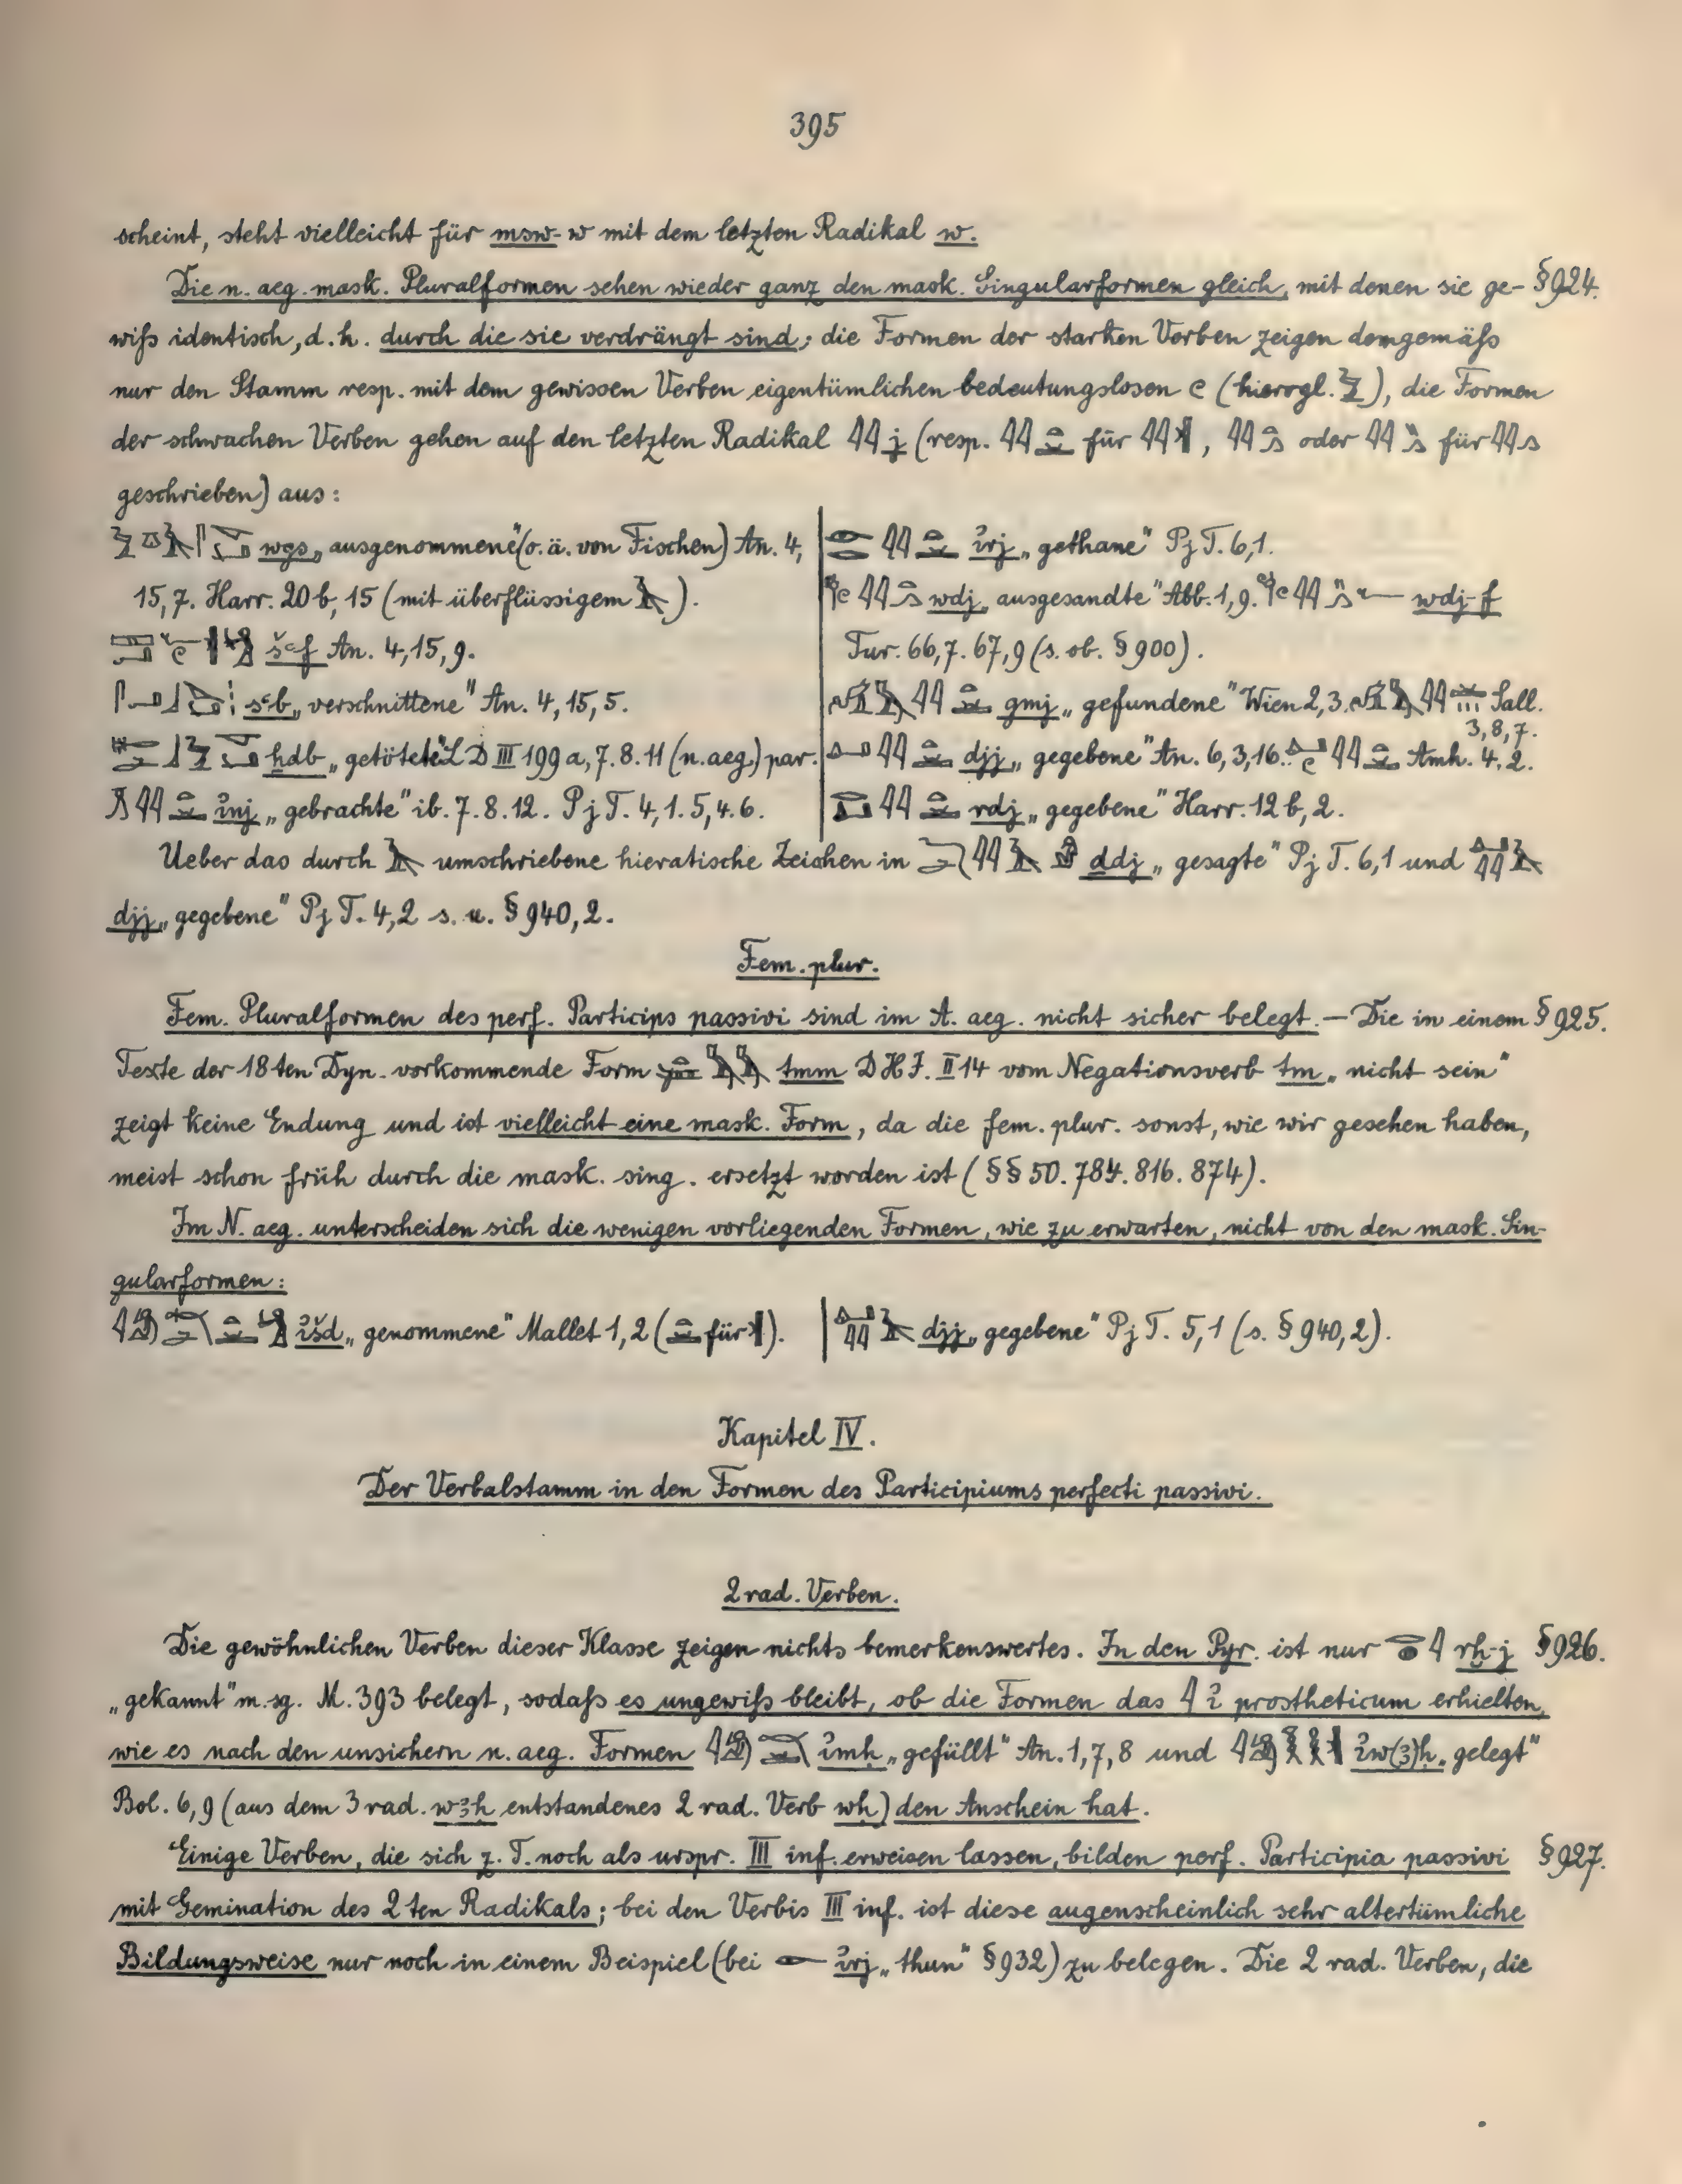 395
scheint, steht vielleicht für msw-w mit dem letzten Radikal w.
Die n. aeg. mask. Pluralformen sehen wieder ganz den mask. Singularformen gleich, mit denen sie ge- § 924.
wiß identisch, d. h. durch die sie verdrängt sind; die Formen der starken Verben zeigen demgemäß
nur den Stamm resp. mit dem gewissen Verben eigentümlichen bedeutungslosen (hierogl. ), die Formen
der schwachen Verben gehen auf den letzten Radikal j (resp. für , oder für
geschrieben) aus:
wgs „ausgenommene" (o. ä. von Fischen) An. 4,
15,7. Harr. 20 b, 15 (mit überflüssigem ).
šꜥf An. 4,15,9.
sꜥb „verschnittene" An. 4,15,5.
ḫdb „getötete" L D III 199 a, 7. 8. 11 (n. aeg.) par.
ỉnj „gebrachte" ib. 7. 8. 12. Pj T. 4,1. 5,4. 6.
ỉrj „gethane" Pj T. 6,1.
wdj „ausgesandte" Abb. 1,9. wdj-f
Tur. 66,7. 67,9 (s. ob. § 900).
gmj „gefundene" Wien 2,3. Sall.
3,8,7.
djj „gegebene" An. 6,3,16. Amh. 4,2.
rdj „gegebene" Harr. 12 b, 2.
Ueber das durch umschriebene hieratische Zeichen in ḏdj „gesagte" Pj T. 6,1 und
djj „gegebene" Pj T. 4,2 s. u. § 940,2.
Fem. plur.
Fem. Pluralformen des perf. Particips passivi sind im A. aeg. nicht sicher belegt. — Die in einem § 925.
Texte der 18ten Dyn. vorkommende Form tmm D H J. II 14 vom Negationsverb tm „nicht sein"
zeigt keine Endung und ist vielleicht eine mask. Form, da die fem. plur. sonst, wie wir gesehen haben,
meist schon früh durch die mask. sing. ersetzt worden ist (§§ 50. 784. 816. 874).
Im N. aeg. unterscheiden sich die wenigen vorliegenden Formen, wie zu erwarten, nicht von den mask. Sin-
gularformen:
ỉšd „genommene" Mallet 1,2 ( für ).
djj „gegebene" Pj T. 5,1 (s. § 940,2).
Kapitel IV.
Der Verbalstamm in den Formen des Participiums perfecti passivi.
2 rad. Verben.
Die gewöhnlichen Verben dieser Klasse zeigen nichts bemerkenswertes. In den Pyr. ist nur rḫ-j § 926.
„gekannt" m. sg. M. 393 belegt, sodaß es ungewiß bleibt, ob die Formen das ỉ prostheticum erhielten,
wie es nach den unsichern n. aeg. Formen ỉmḥ „gefüllt" An. 1,7,8 und ỉw(ꜣ)ḥ „gelegt"
Bol. 6,9 (aus dem 3 rad. wꜣḥ entstandenes 2 rad. Verb wḥ) den Anschein hat.
Einige Verben, die sich z. T. noch als urspr. III inf. erweisen lassen, bilden perf. Participia passivi § 927.
mit Gemination des 2 ten Radikals; bei den Verbis III inf. ist diese augenscheinlich sehr altertümliche
Bildungsweise nur noch in einem Beispiel (bei ỉrj „thun" § 932) zu belegen. Die 2 rad. Verben, die